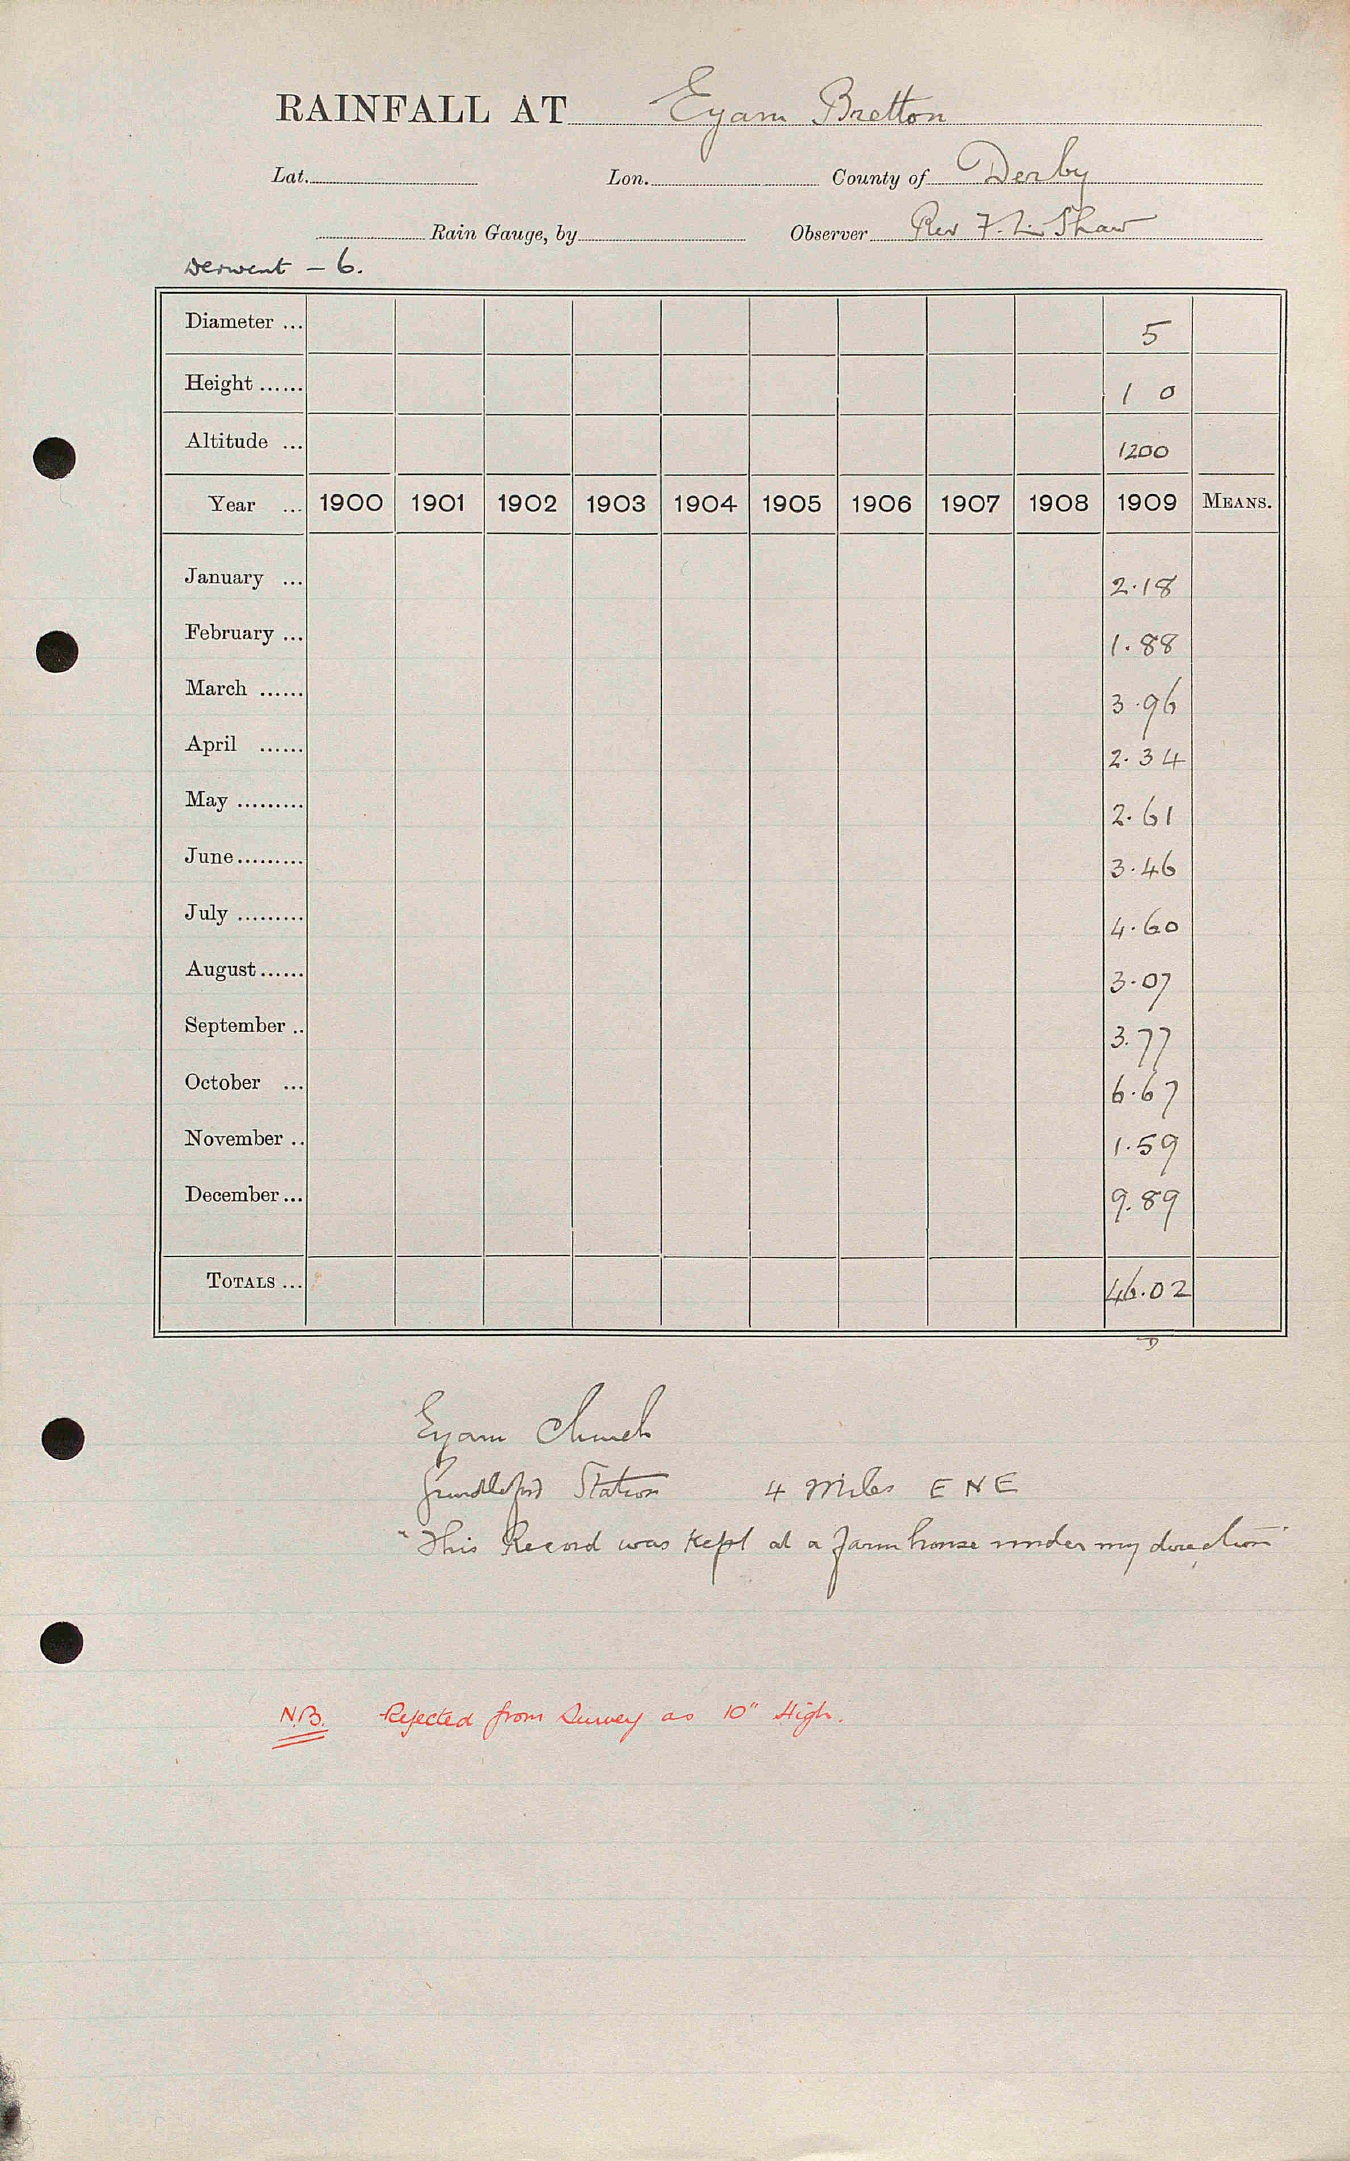 RAINFALL AT Eyam Bretton
Lat. Lon. County of Derby
Rain Gauge, by Observer Rev F. Shaw
Derwent - 6.
Diameter ... 5
Height ...... 1 0
Altitude ... 1200
Year ... 1900 1901 1902 1903 1904 1905 1906 1907 1908 1909 MEANS.
January ... 2.18
February ... 1.88
March ...... 3.96
April ...... 2.34
May ......... 2.61
June ......... 3.46
July ......... 4.60
August ...... 3.07
September .. 3.77
October ... 6.67
November .. 1.59
December ... 9.89
TOTALS ... 46.02
Eyam Church
Grindleford Station 4 Miles E N E
"This Record was kept at a farm house under my direction"
N.B. Rejected from Survey as 10" High.